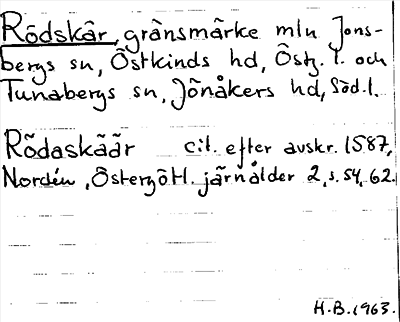 Rödskär, gränsmärke mln Jons-
bergs sn, Östkinds hd, Östg. l. och
Tunabergs sn, Jönåkers hd, Söd.l.
Rödaskäär cit. efter avskr. 1587,
Nordén, Östergötl. järnålder 2, s. 54, 62.
H.B. 1963.